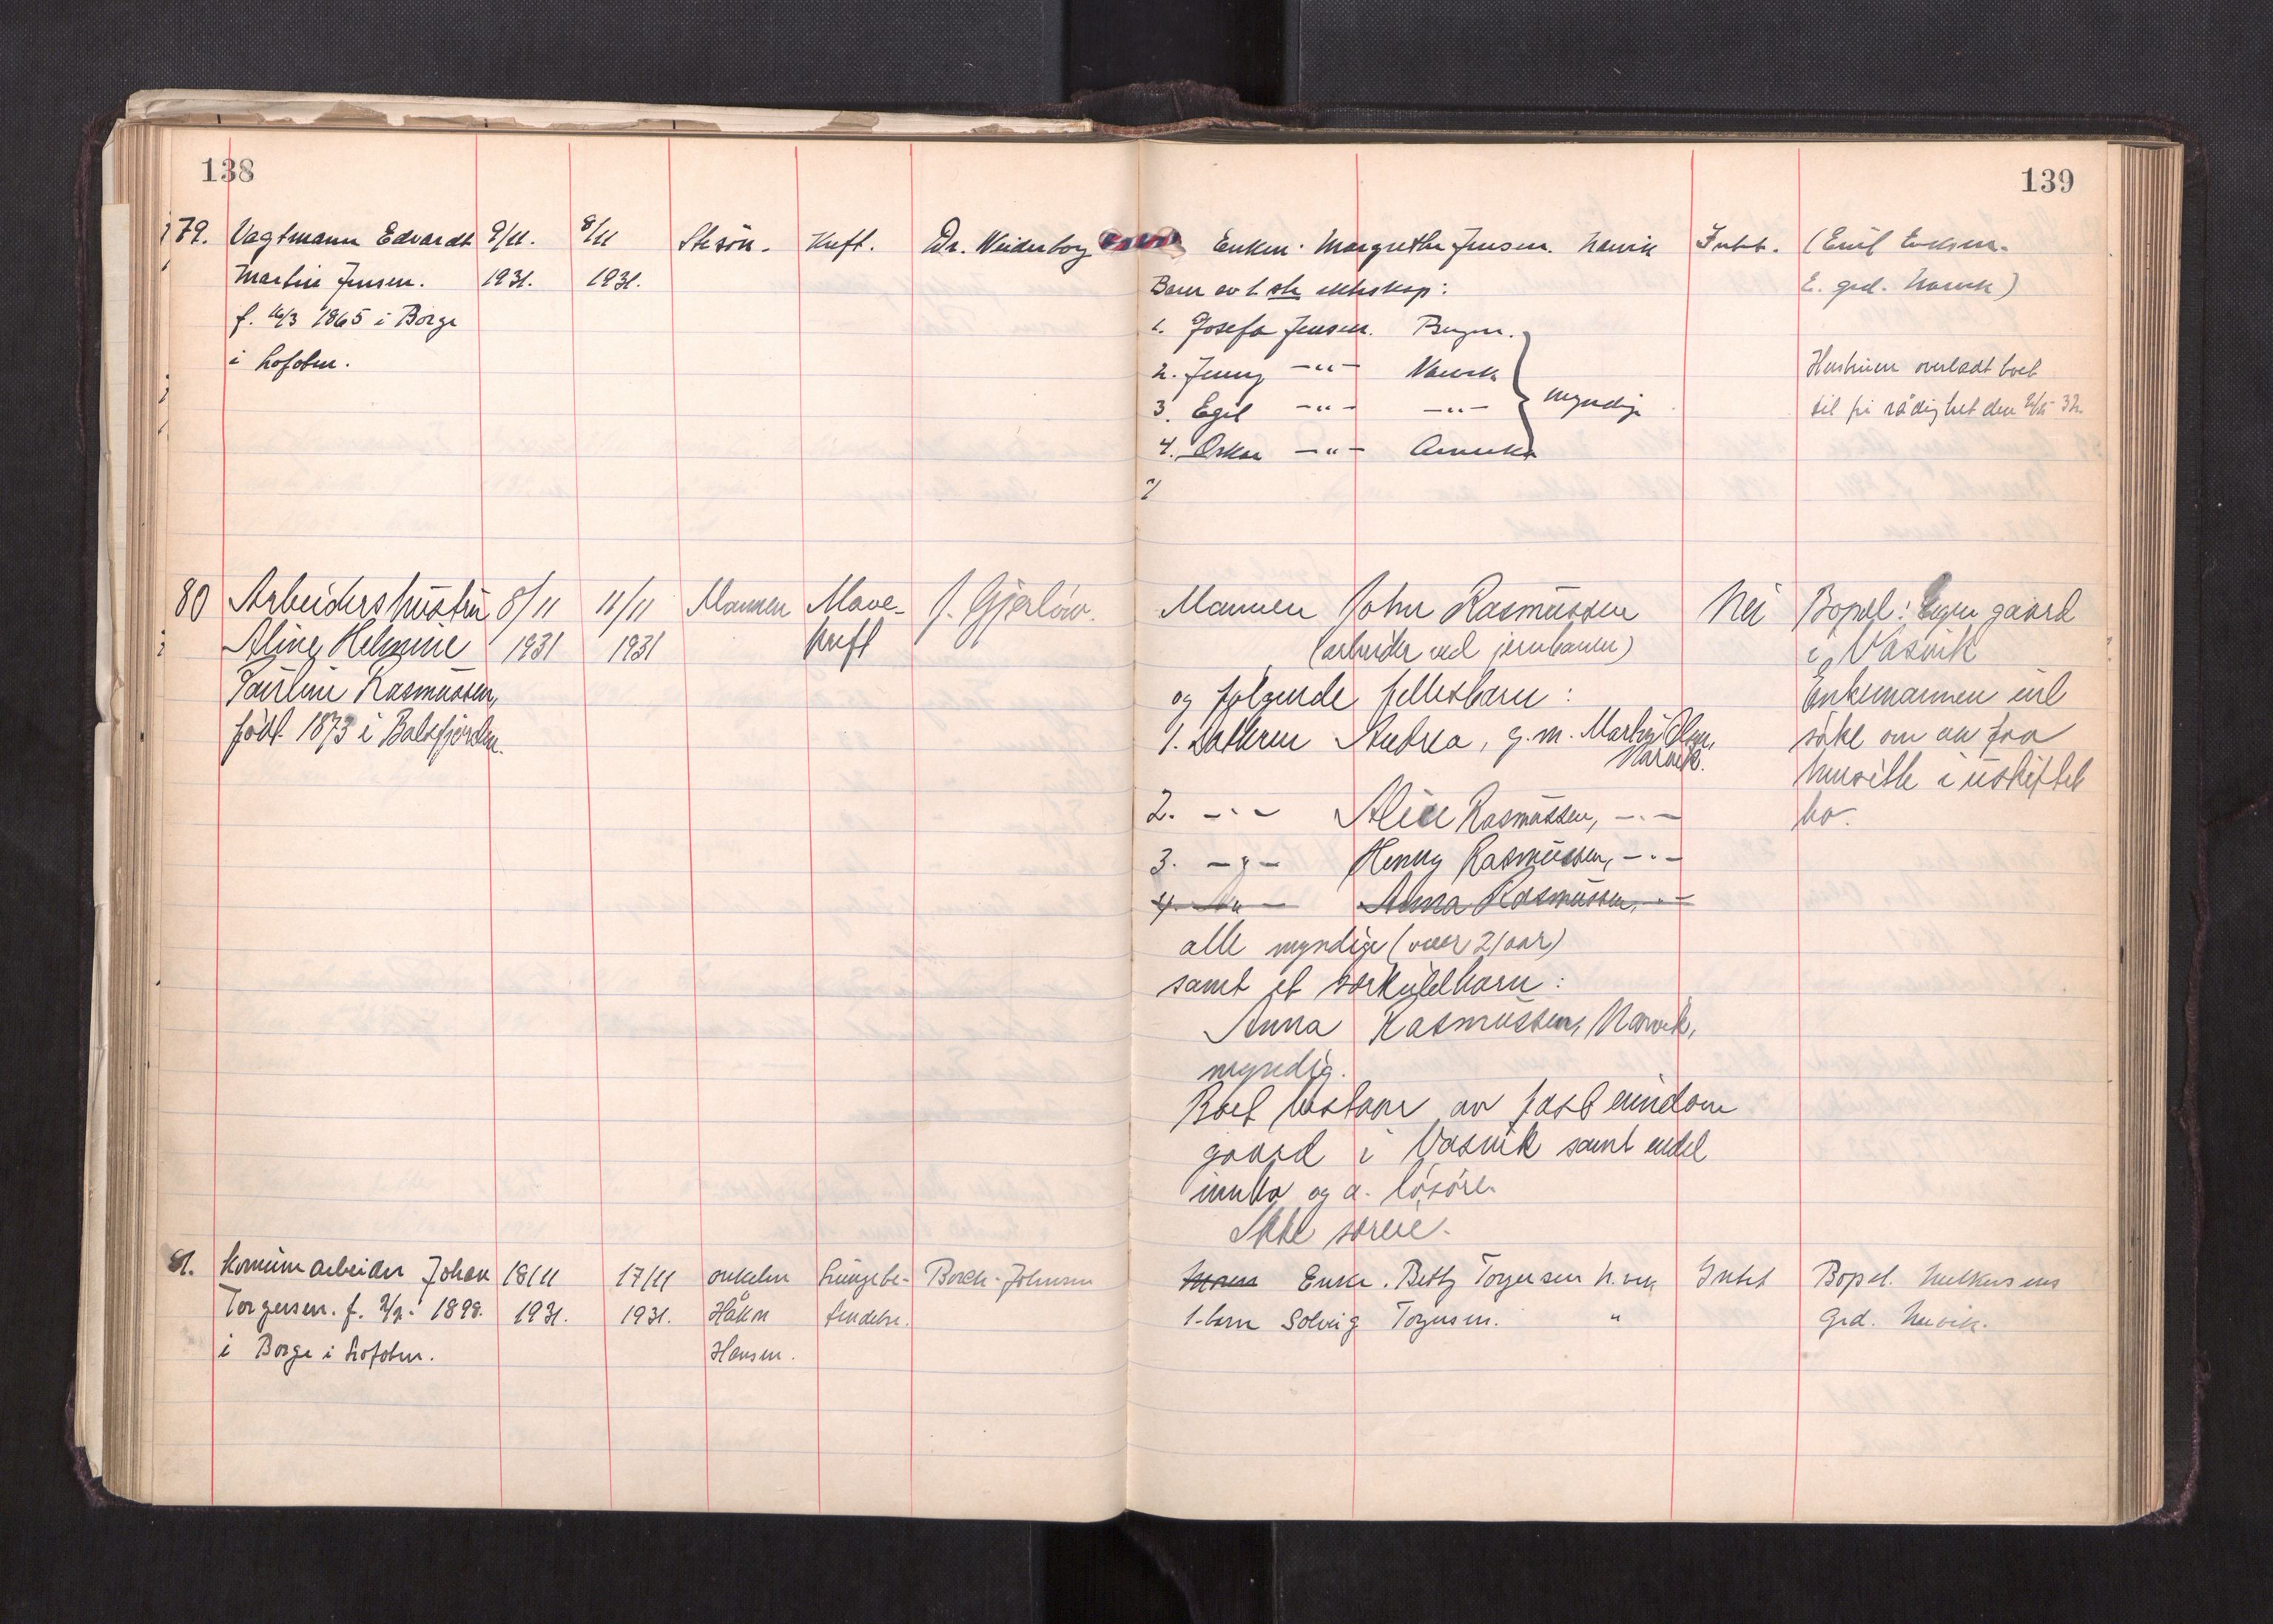 138
79. Vagtmann Edvardt 9/11. 8/11 Stesön. Kreft. Dr. Weiderborg
Martin Jensen. 1931. 1931.
f. 16/3 1865 i Borge
i Lofoten.
80 Arbeidershustru 8/11 11/11 Mannen Mave- J. Gjerløw.
Aline Helmine 1931 1931 kreft
Pauline Rasmussen,
født 1873 i Balsfjorden.
81. Komunearbeider Johan 18/11 17/11 onkelen Lungebe- Borch-Johnsen
Torgersen. f. 1898. 1931. 1931. Håkon tendelse.
i Borge i Lofoten. Hansen.
139
Enken. Margrethe Jensen. Narvik Intet. (Emil Eriksen.
Barn av 1 ste ekteskap: E. grd. Narvik)
1. Josefa Jensen. Bergen.
2. Jenny -"- Narvik Hustruen overladt boet
3. Egil -"- -"- myndige til fri rådighet den 32.
4. Oskar -"- Amerika
Mannen John Rasmussen Nei Bopel: Egen gaard
(arbeider ved jernbanen) i Vasvik
og følgende fellesbarn: Enkemannen vil
1. datteren Andrea, g.m. Martin Olsen, søke om aa faa
Narvik. hensitte i uskiftet
2. -"- Alice Rasmussen, -"- bo.
3. -"- Henny Rasmussen, -"-
4. -"- Anna Rasmussen, -"-
alle myndige (over 21 aar)
samt et særkuldbarn:
Anna Rasmussen, Narvik,
myndig.
Boet bestaar av fast eiendom
gaard i Vasvik samt endel
innbo og a. løsøre.
Ikke særeie.
Enke. Betty Torgersen N.vik Intet Bopel.
1-barn Solveig Torgersen. " Grd. Narvik.